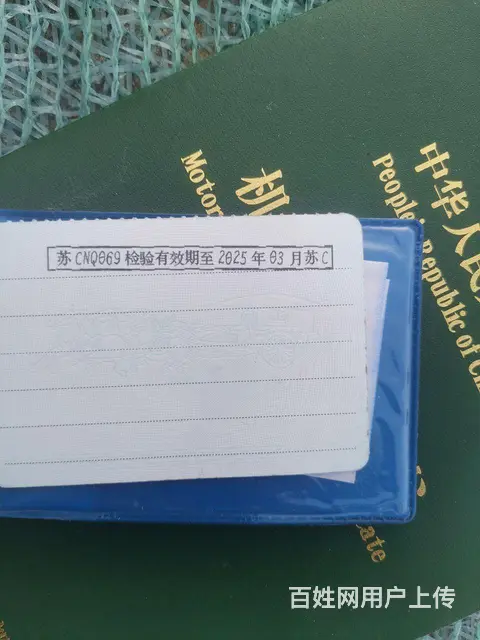 中华人民
People's Republic of Ch
机
Motor
苏 CNQ069 检验有效期至 2025 年 03 月苏 C
ate
百姓网用户上传